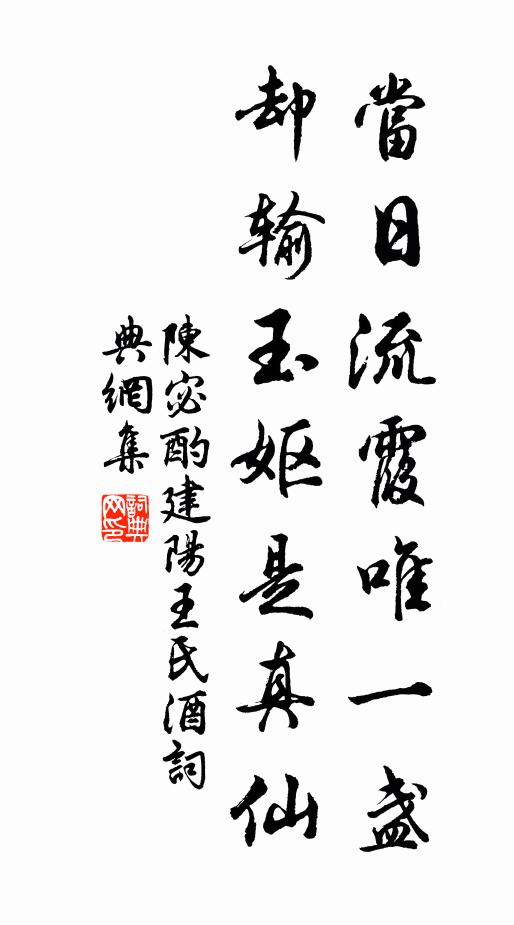 當日流霞唯一盞
却輸玉妪是真仙
陳宓酌建陽王氏酒詞
典網集
詞典
网印